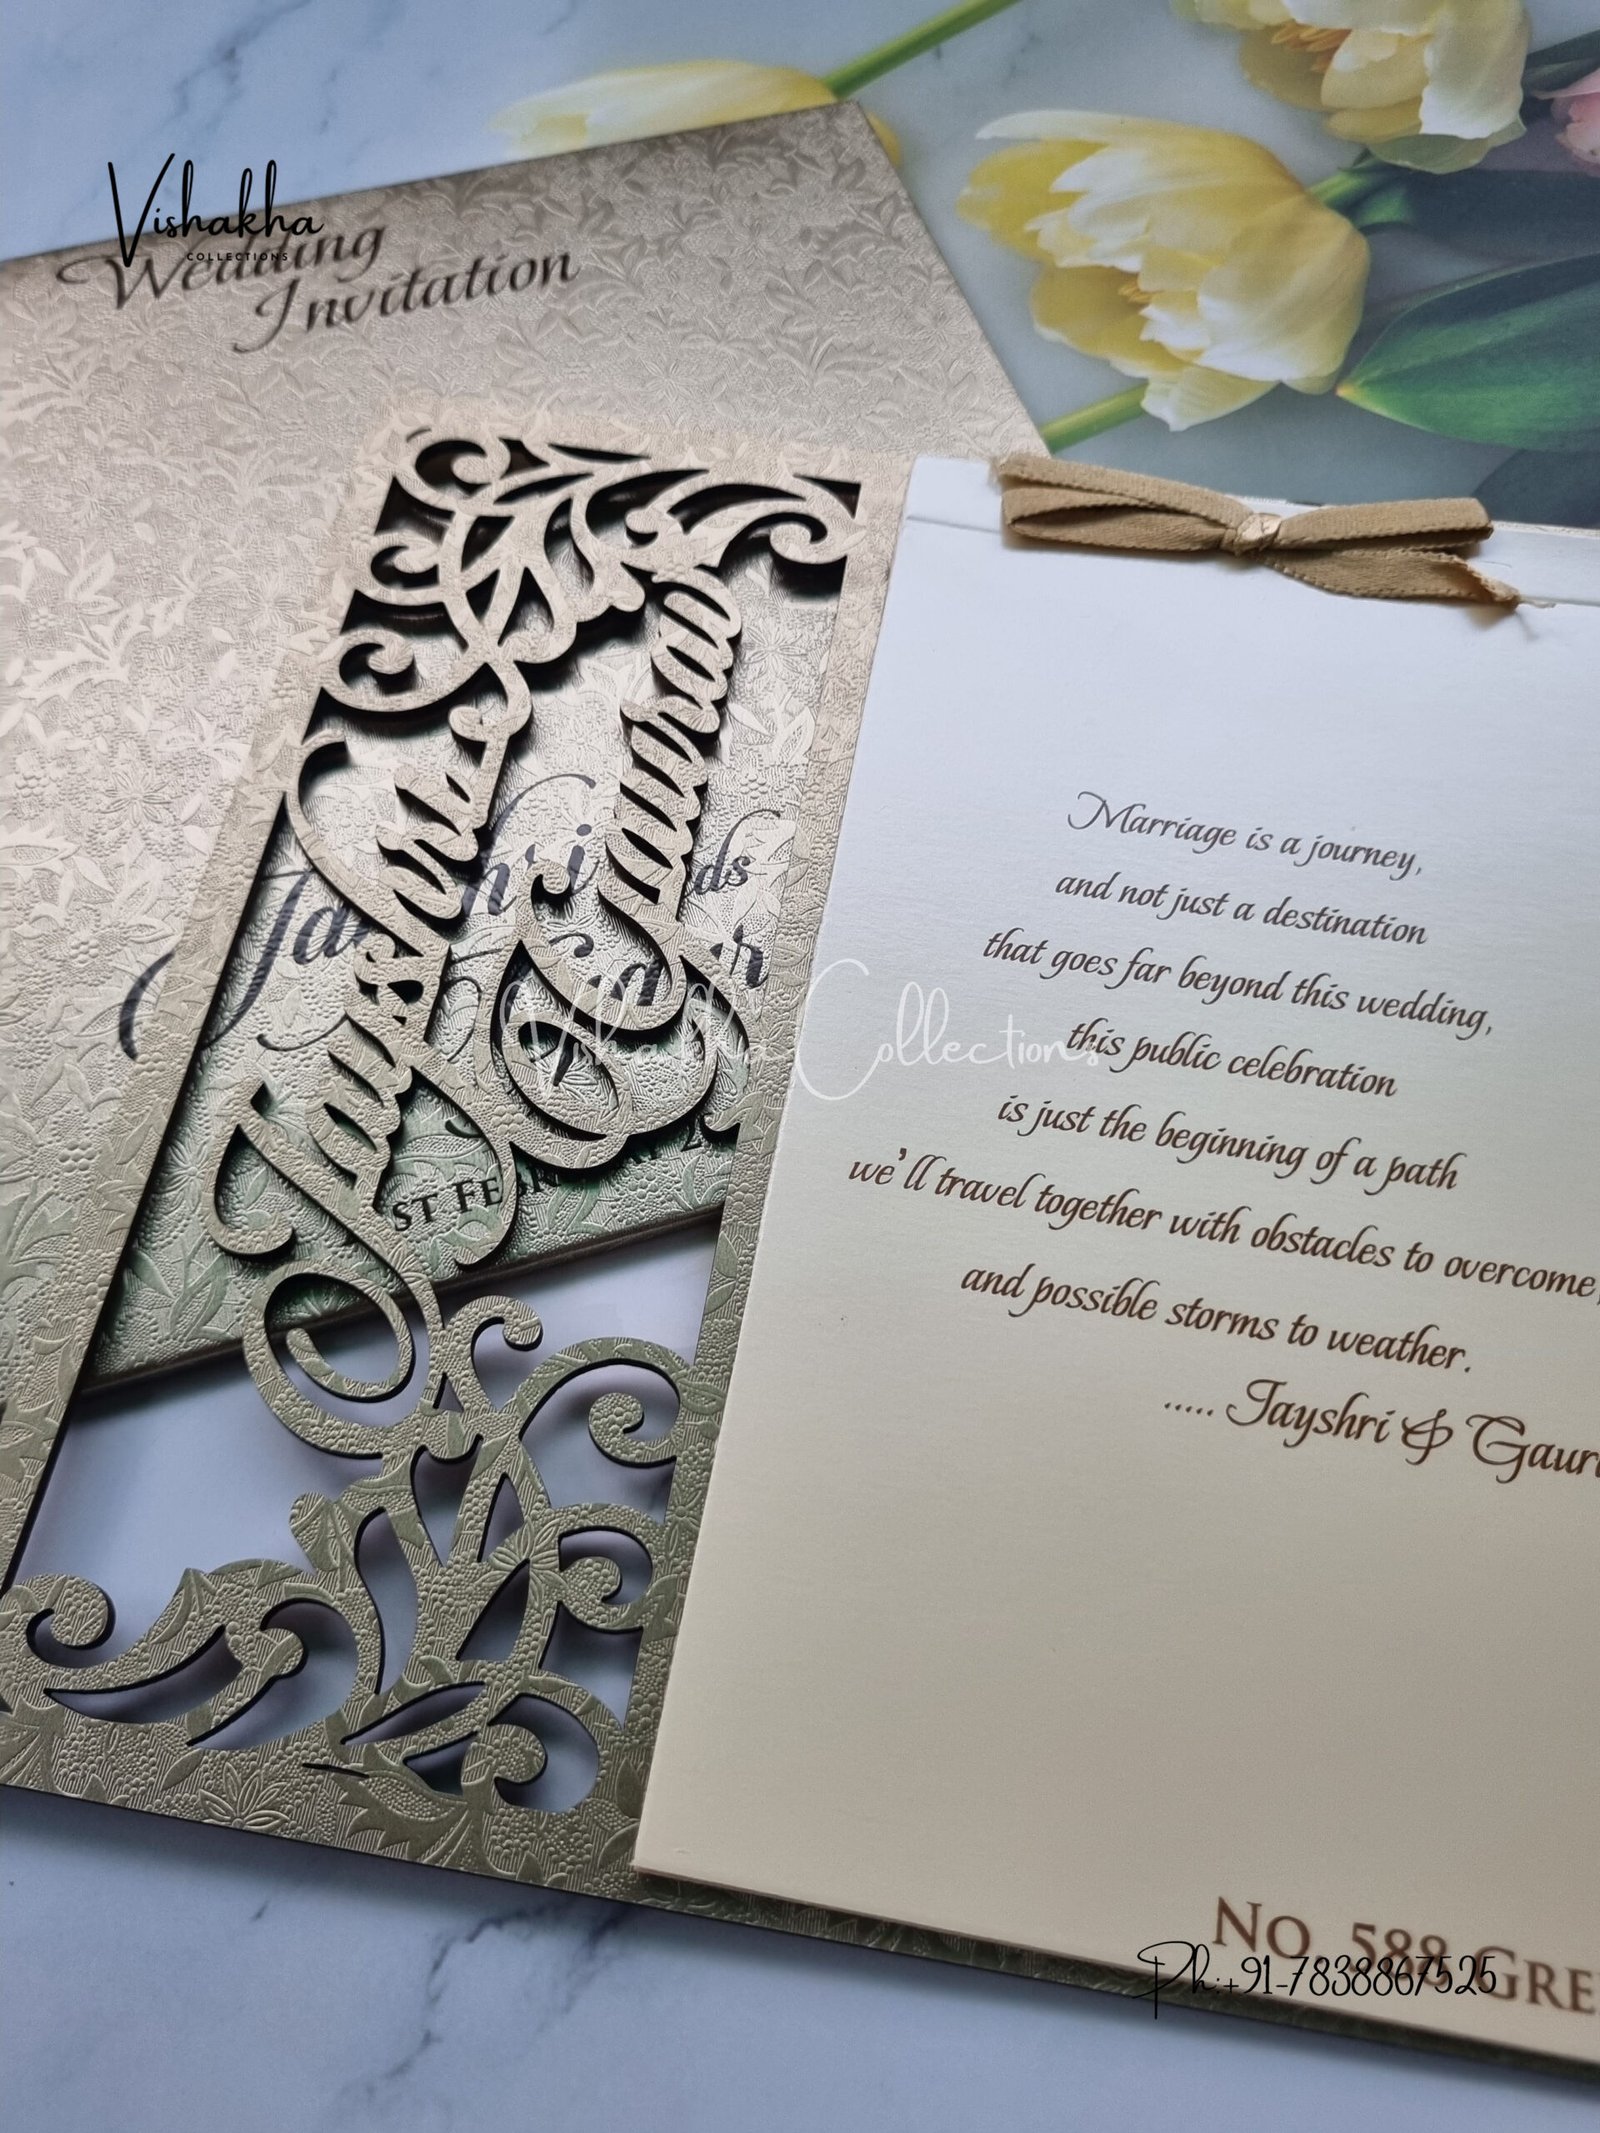 Vishakha
COLLECTIONS
Wedding
Invitation
Jayshri
Gaurav
Jayshri
ds
ST FEBR
Vishakha Collections
Marriage is a journey,
and not just a destination
that goes far beyond this wedding,
this public celebration
is just the beginning of a path
we'll travel together with obstacles to overcome,
and possible storms to weather.
..... Jayshri & Gaur
NO. 588 GRE
Ph:+91-7838867525